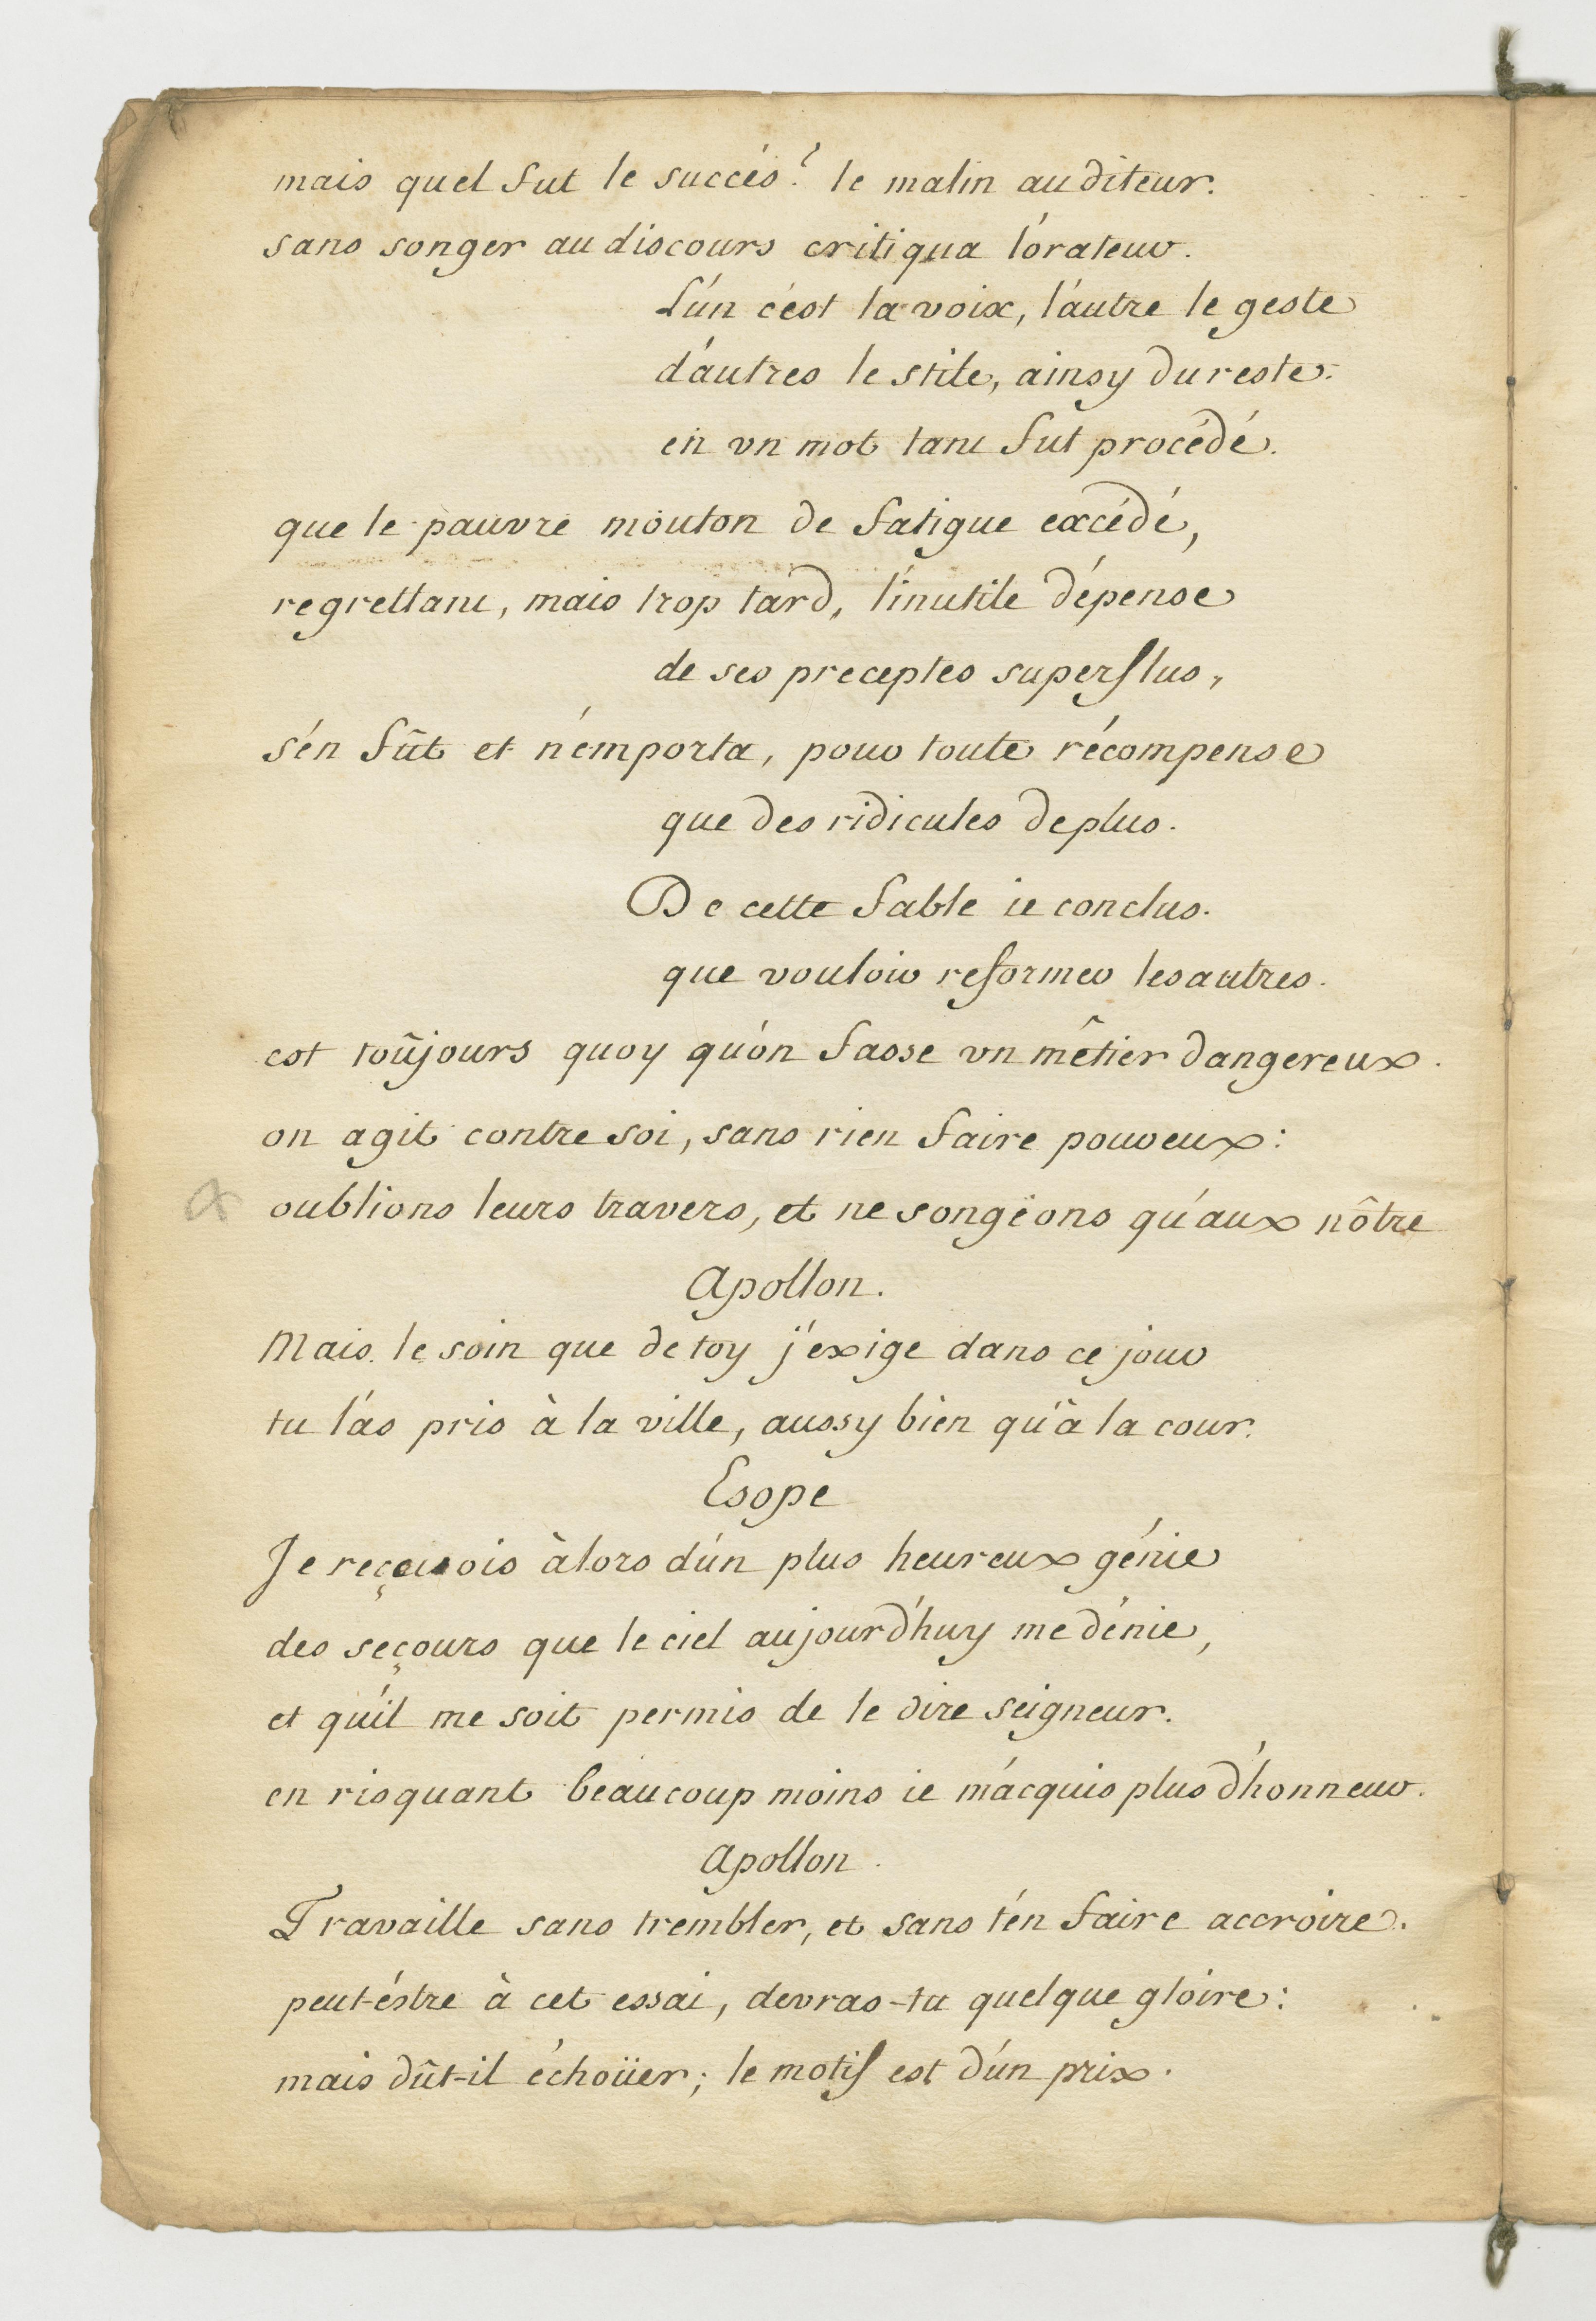 mais quel fut le succés? le malin auditeur.
sans songer au discours critiqua l'orateur.
L'un c'est la voix, l'autre le geste
d'autres le stile, ainsy du reste.
en vn mot tant fut procédé.
que le pauvre mouton de fatigue excédé,
regrettant, mais trop tard, l'inutile dépense
de ses preceptes superflus,
s'en fût et n'emporta, pour toute récompense
que des ridicules de plus.
De cette fable ie conclus.
que vouloir reformer les autres.
est toûjours quoy qu'on fasse vn mêtier dangereux.
on agit contre soi, sans rien faire pour eux:
oublions leurs travers, et ne songeons qu'aux nôtre
Apollon.
Mais le soin que de toy j'exige dans ce jour
tu l'as pris à la ville, aussy bien qu'à la cour.
Esope
Je reçeuois àlors d'un plus heureux génie
des seçours que le ciel aujourd'huy me dénie,
et qu'il me soit permis de le dire seigneur.
en risquant beaucoup moins ie m'acquis plus d'honneur.
Apollon.
Travaille sans trembler, et sans t'en faire accroire.
peut-éstre à cet essai, devras-tu quelque gloire:
mais dût-il échoüer; le motif est d'un prix.